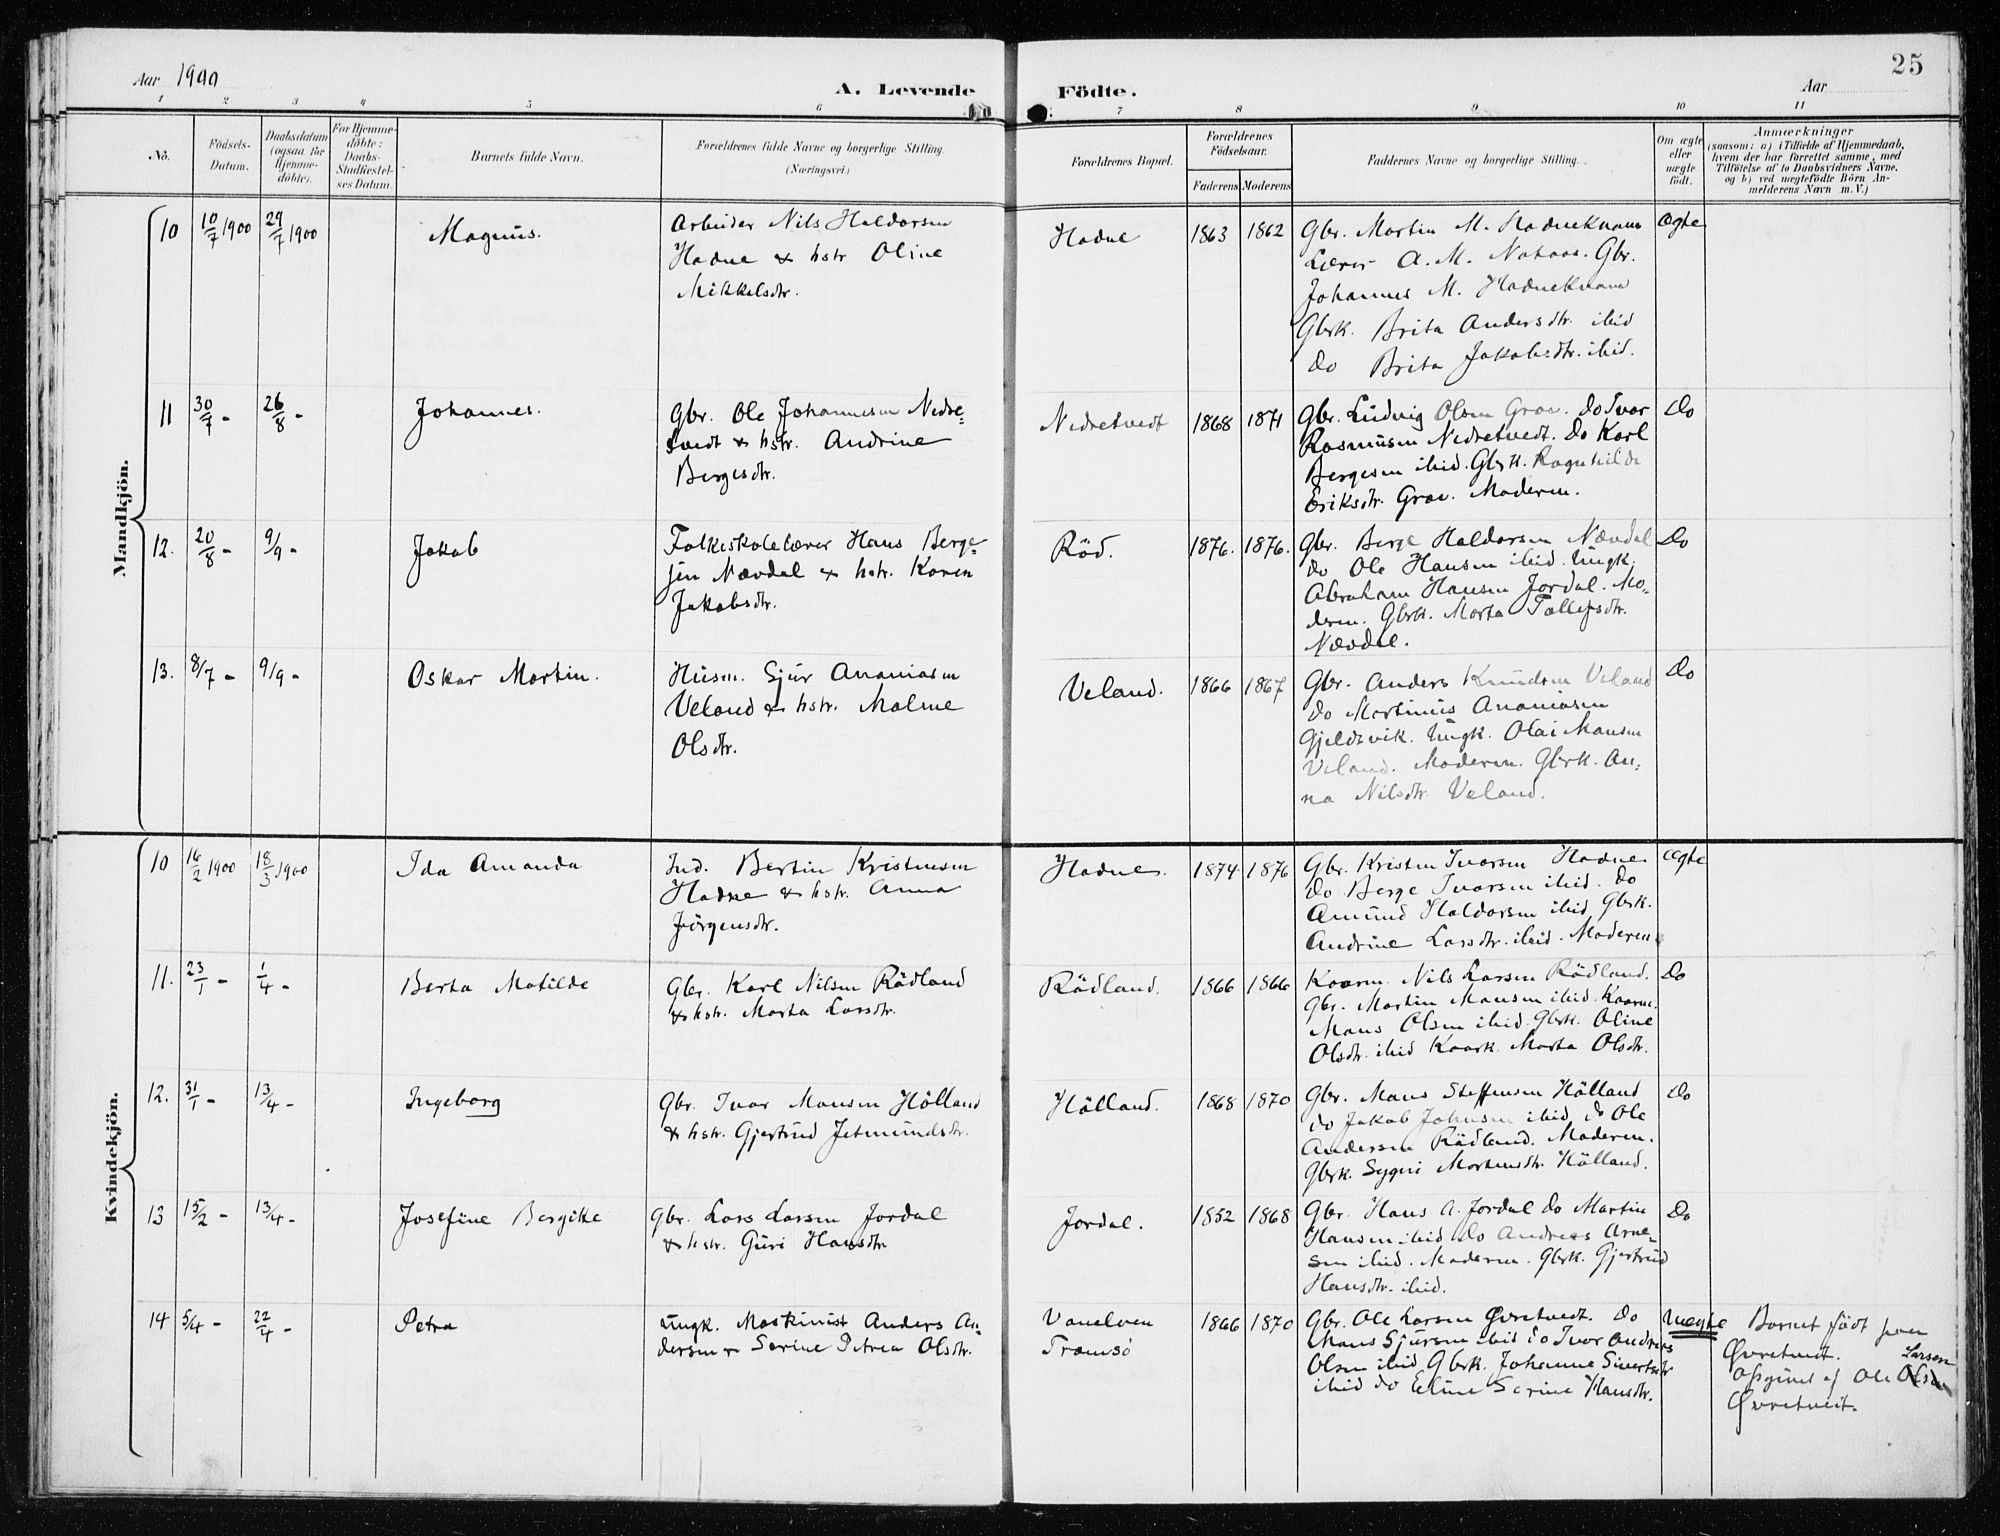 25
Aar 1900
A. Levende Födte.
Aar
1 2 3 4 5 6 7 8 9 10 11
No.
Födsels-
Datum.
Daabsdatum
(ogsaa for
Hjemme-
döbte).
For Hjemme-
döbte:
Daabs-
Stadfæstel-
ses Datum.
Barnets fulde Navn.
Forældrenes fulde Navne og borgerlige Stilling.
(Næringsvei.)
Forældrenes Bopæl.
Forældrenes
Födselsaar.
Faderens Moderens
Faddernes Navne og borgerlige Stilling.
Om ægte
eller
uægte
födt.
Anmærkninger
(saasom: a) i Tilfælde af Hjemmedaab,
hvem der har forrettet samme, med
Tilföielse af to Daabsvidners Navne,
og b) ved uægtefödte Börn An-
melderens Navn m. V.)
Mandkjön.
10 10/7 1900 29/7 1900 Magnus.
Arbeider Nils Haldorsen
Hadne & hstr Oline
Mikkelsdtr.
Hadne 1863 1862
Gbr. Martin M. Hadneknam
Lærer A. M. Nataas. Gbr.
Johannes M. Hadneknam
Gbrk. Brita Andersdtr. ibid
Do Brita Jakobsdtr. ibid.
Ægte
11 30/7 - 26/8 - Johannes.
Gbr. Ole Johannesen Nedre-
tvedt & hstr. Andrine
Bergesdtr.
Nedretvedt 1868 1871
Gbr. Ludvig Olsen Grov. do Ivar
Rasmusen Nedretvedt. Do Karl
Bergesen ibid. Gbrk. Ragnhilda
Eriksdtr. Grov. Moderen.
Do
12. 20/8 - 9/9 - Jakob
Folkeskolelærer Hans Berge-
sen Nævdal & hstr. Karen
Jakobsdtr.
Röd. 1876. 1876.
Gbr. Berge Haldorsen Nævdal
do Ole Hansen ibid. Ungk.
Abraham Hansen Jordal. Mo-
deren. Gbrk. Marta Tollefsdtr.
Nævdal.
Do
13. 8/7 - 9/9 - Oskar Martin.
Husm. Sjur Ananiasen
Veland & hstr. Malene
Olsdtr.
Veland. 1866 1867
Gbr. Anders Knudsen Veland
do Martinus Ananiasen
Gjeldsvik. Ungk. Olai Monsen
Veland. Moderen. Gbrk. An-
na Nilsdtr. Veland.
Do
Kvindekjön.
10 16/2 1900 18/3 1900 Ida Amanda
Ind. Bertin Kristensen
Hadne & hstr. Anna
Jörgensdtr.
Hadne. 1874 1876
Gbr. Kristen Ivarsen Hadne
do Berge Ivarsen ibid. do
Amund Haldorsen ibid. Gbrk.
Andrine Larsdtr. ibid. Moderen
Ægte
11. 23/1 - 1/4 - Berta Matilde
Gbr. Karl Nilsen Rödland
& hstr. Marta Larsdtr.
Rödland. 1866 1866
Kaarm. Nils Larsen Rödland.
Gbr. Martin Monsen ibid. Kaarm.
Mons Olsen ibid. Gbrk. Oline
Olsdtr. ibid Kaark. Marta Olsdtr.
Do
12. 31/1 - 13/4 - Ingeborg
Gbr. Ivar Monsen Hölland
& hstr. Gjertrud Jetmundsdtr.
Hölland. 1868 1870
Gbr. Mons Steffensen Hölland
do Jakob Johnsen ibid. do Ole
Andersen Rödland. Moderen.
Gbrk. Sygni Mortensdtr. Hölland.
Do
13 15/2 - 13/4 - Josefine Bergitte
Gbr. Lars Larsen Jordal
& hstr. Guri Hansdtr
Jordal. 1852 1868
Gbr. Hans A. Jordal do Martin
Hansen ibid do Andreas Arne-
sen ibid. Moderen. Gbrk. Gjertrud
Hansdtr. ibid.
Do
14 5/4 - 22/4 - Petra
Ungk. Maskinist Anders An-
dersen & Serine Petrea Olsdtr.
Tromsö
1866 1870
Gbr. Ole Larsen Øvretvedt. Do
Mons Sjursen ibid do Ivar Andreas
Olsen ibid Gbrk. Johanne Sivertsdtr
ibid do Eline Serine Hansdtr.
Uægte
Barnet födt paa
Øvretveit. Larsen
Opgivet af Ole Olsen
Øvretveit.